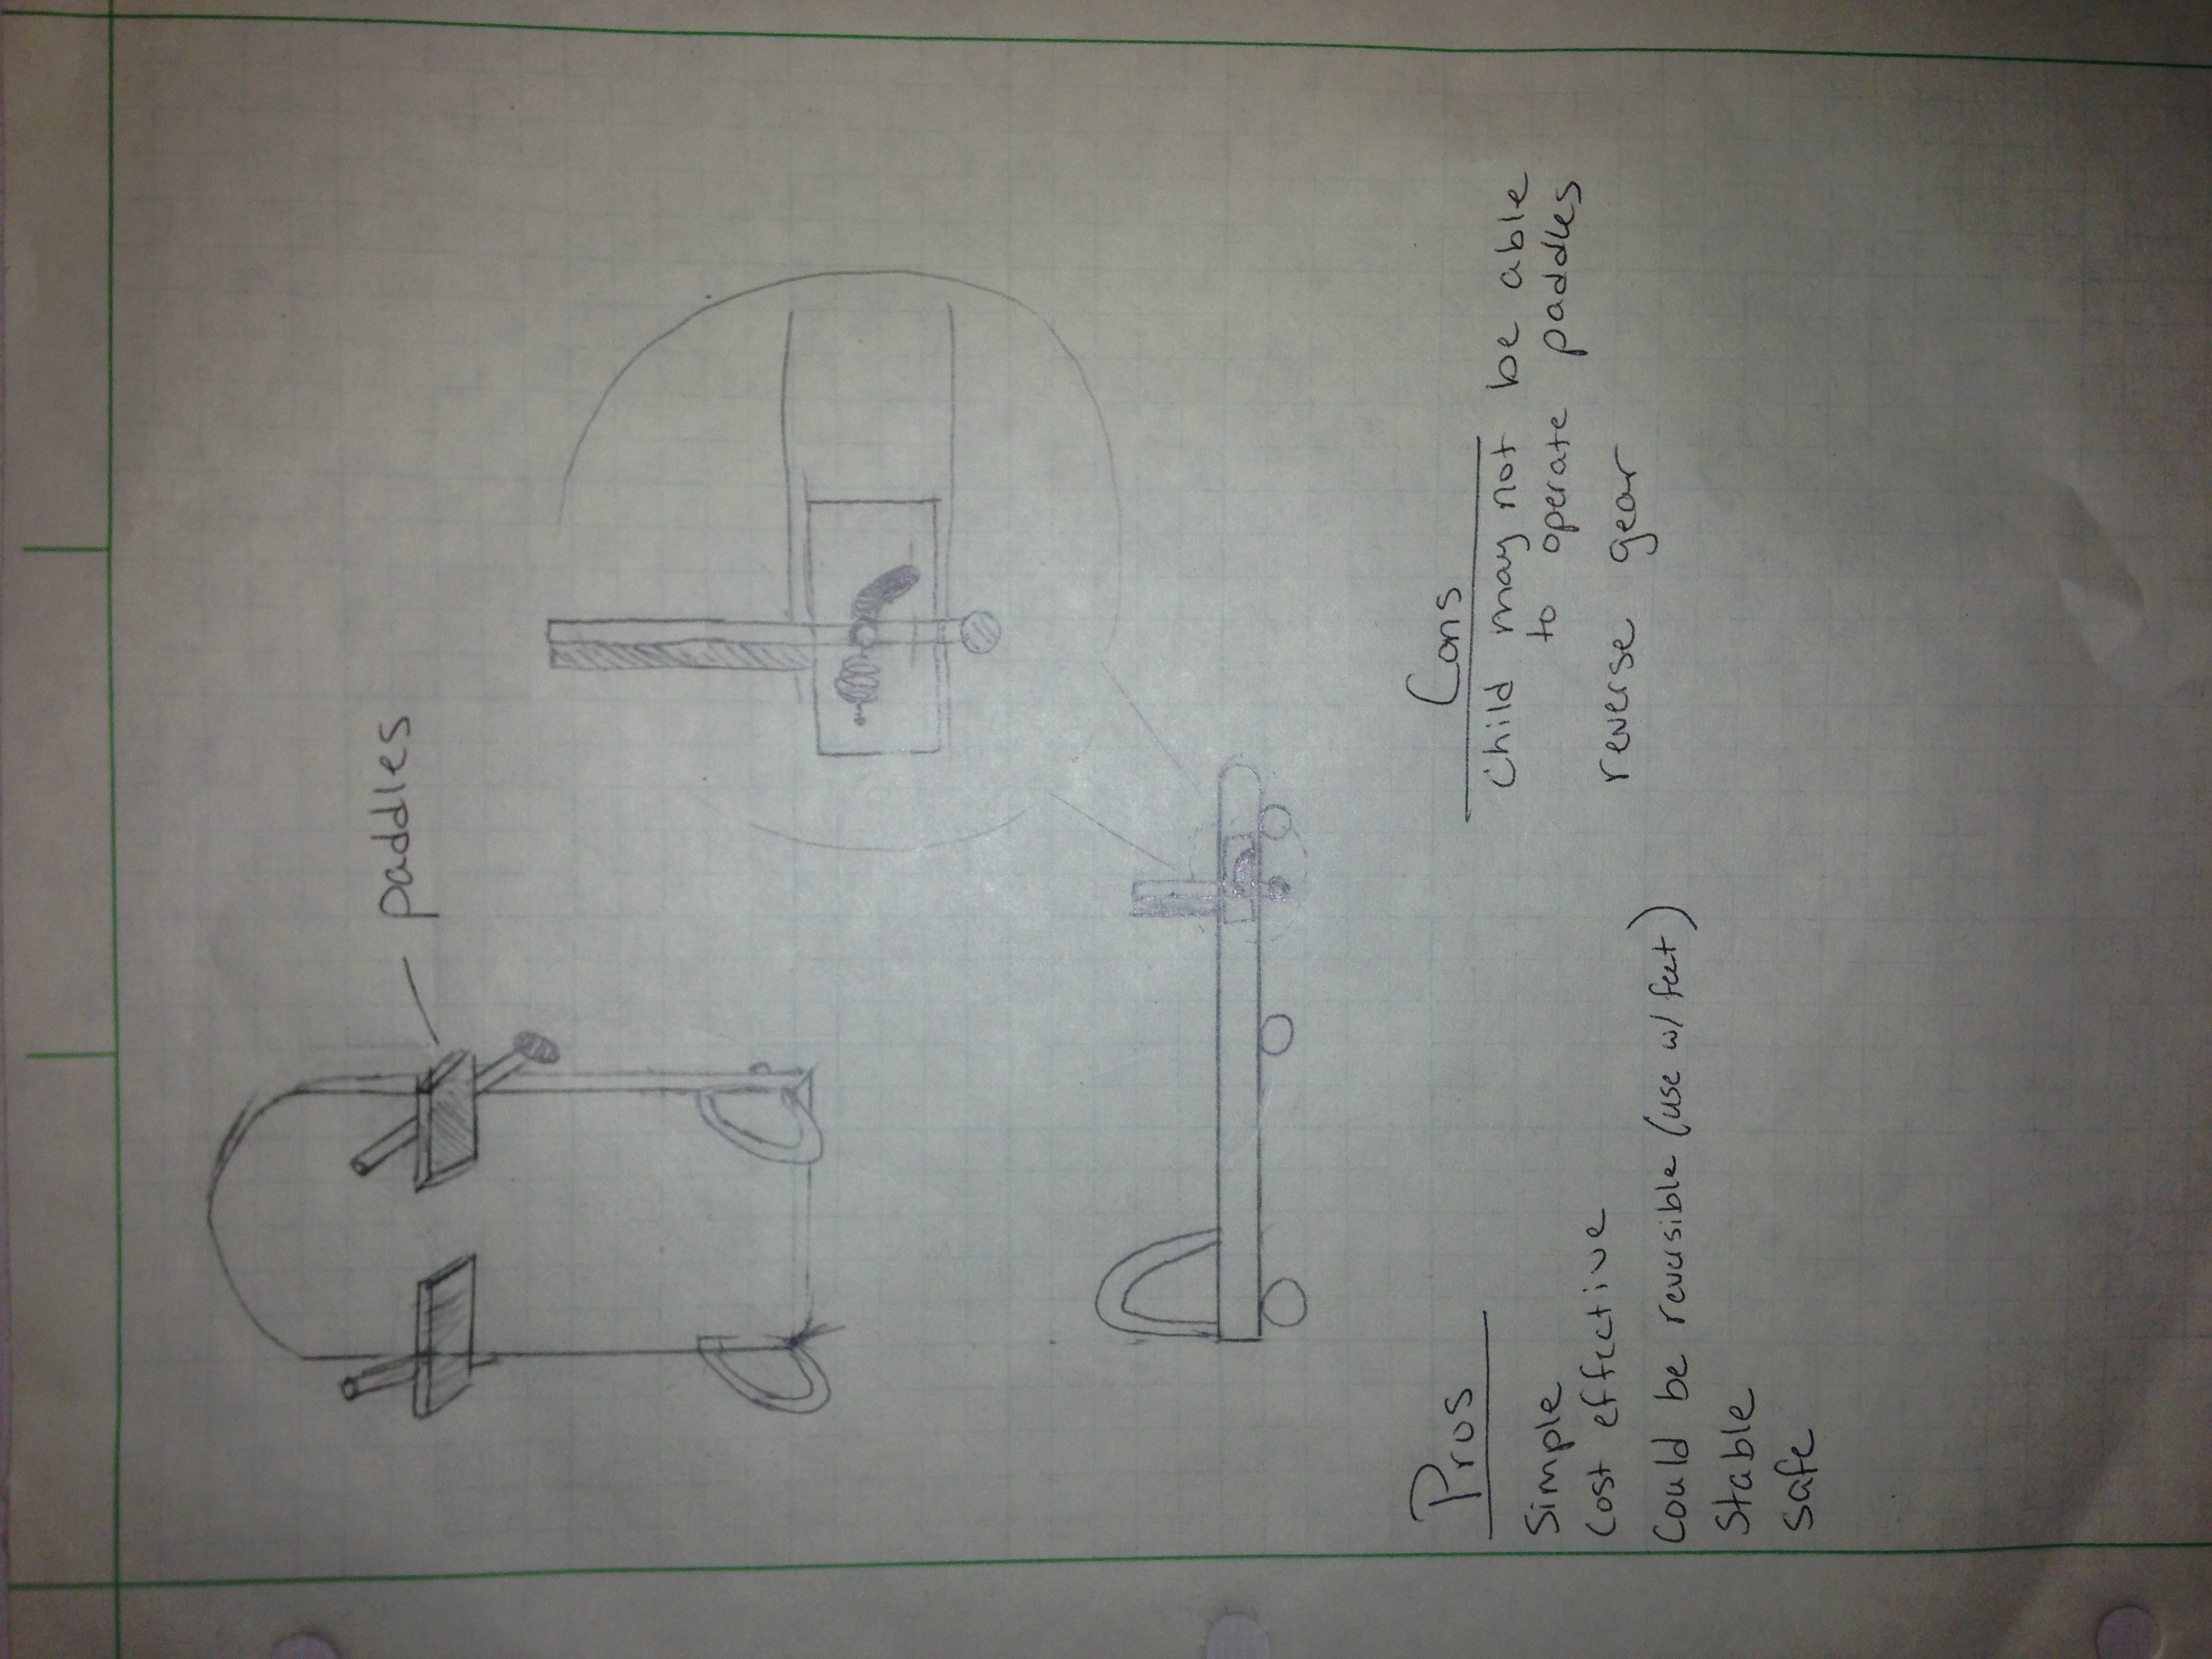 paddles
Pros
Simple
Cost effective
Could be reversible (use w/ feet)
Stable
Safe
Cons
Child may not be able
to operate paddles
reverse gear